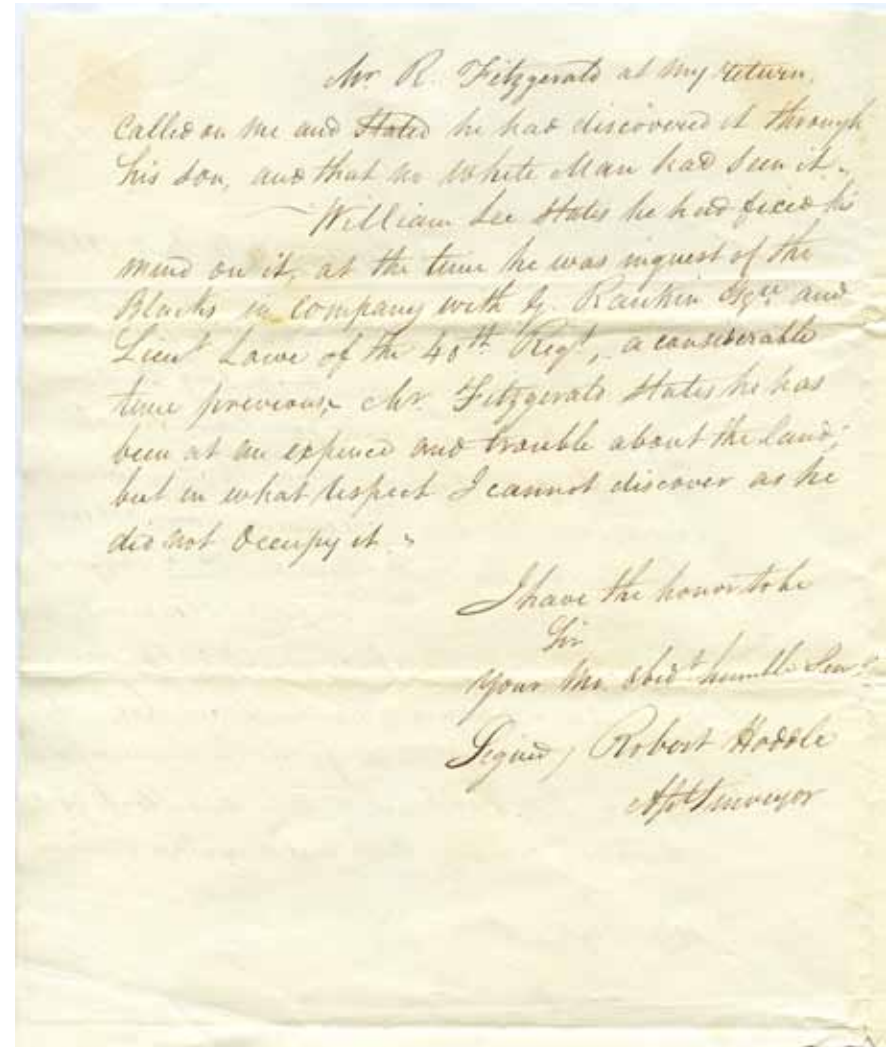 Mr. R. Fitzgerald at my return
Called on me and Stated he had discovered it through
his son, and that no White Man had seen it.
William Lee States he had fixed his
mind on it, at the time he was inquest of the
Blacks in Company with G. Rankin Esqre and
Lieut Lowe of the 40th Regt, a considerable
time previous. Mr. Fitzgerald States he has
been at an expence and trouble about the land;
but in what respect I cannot discover as he
did not Occupy it.
I have the honor to be
Sir
Your Mo. Obedt humble Servt
Signed, Robert Hoddle
Asst Surveyor